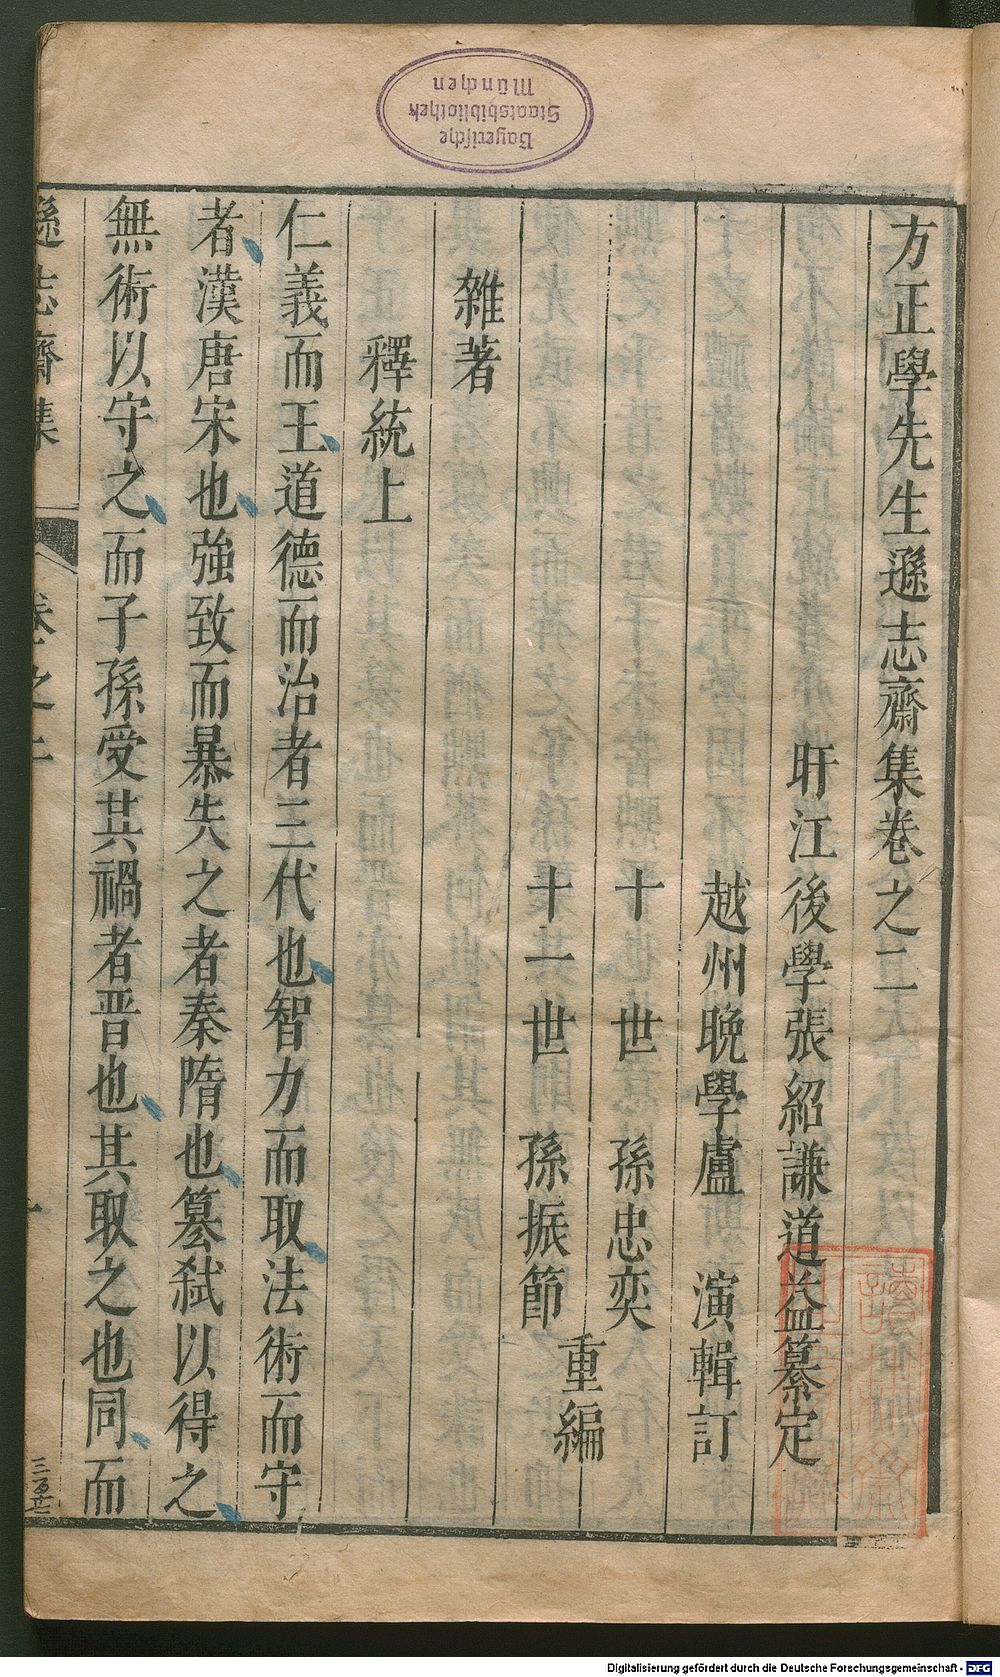 方正學先生遜志齋集卷之二
盱江後學張紹謙道益纂定
越州晚學盧 演輯訂
十 世 孫忠奕
十一世 孫振節
重編
雜著
釋統上
仁義而王道德而治者三代也智力而取法術而守
者漢唐宋也強致而暴失之者秦隋也篡弒以得之
無術以守之而子孫受其禍者晋也其取之也同而
遜志齋集 卷之二 一
Bayerische
Staatsbibliothek
München
Digitalisierung gefördert durch die Deutsche Forschungsgemeinschaft - DFG